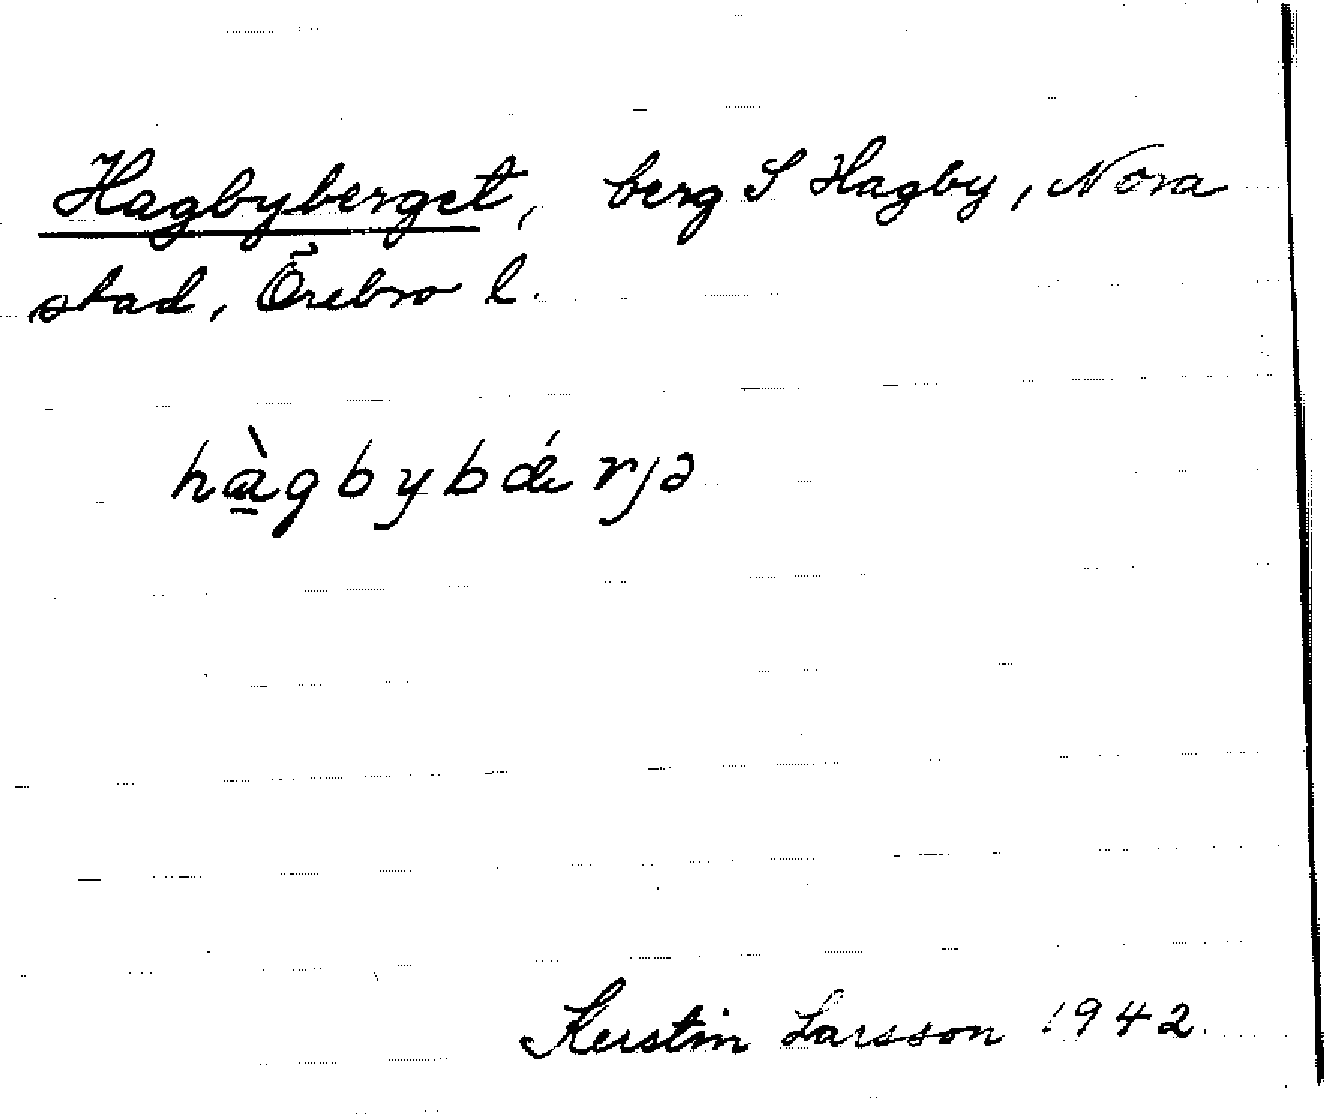 Hagbyberget, berg S Hagby, Nora
stad, Örebro l.
hà̱gbybǽrjə
Kerstin Larsson 1942.